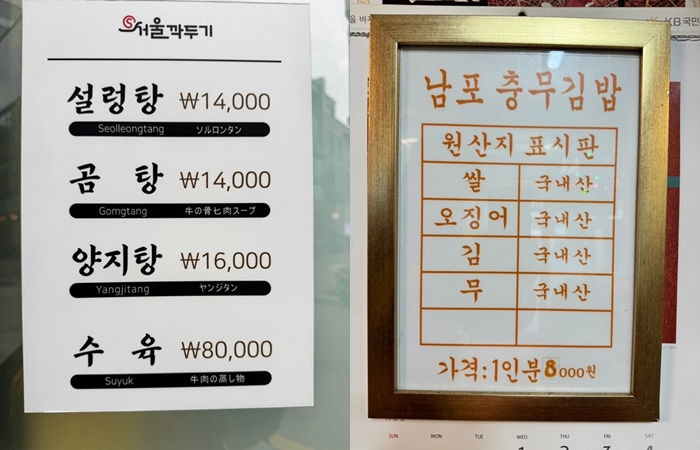 서울깍두기
설렁탕 ₩14,000
Seolleongtang ソルロンタン
곰 탕 ₩14,000
Gomgtang 牛の骨ヒ肉スープ
양지탕 ₩16,000
Yangjitang ヤンジタン
수 육 ₩80,000
Suyuk 牛肉の蒸し物
KB국민
남포 충무김밥
원산지 표시판
쌀 국내산
오징어 국내산
김 국내산
무 국내산
가격:1인분 8000원
SUN MON TUE WED THU FRI SAT
1 2 3 4